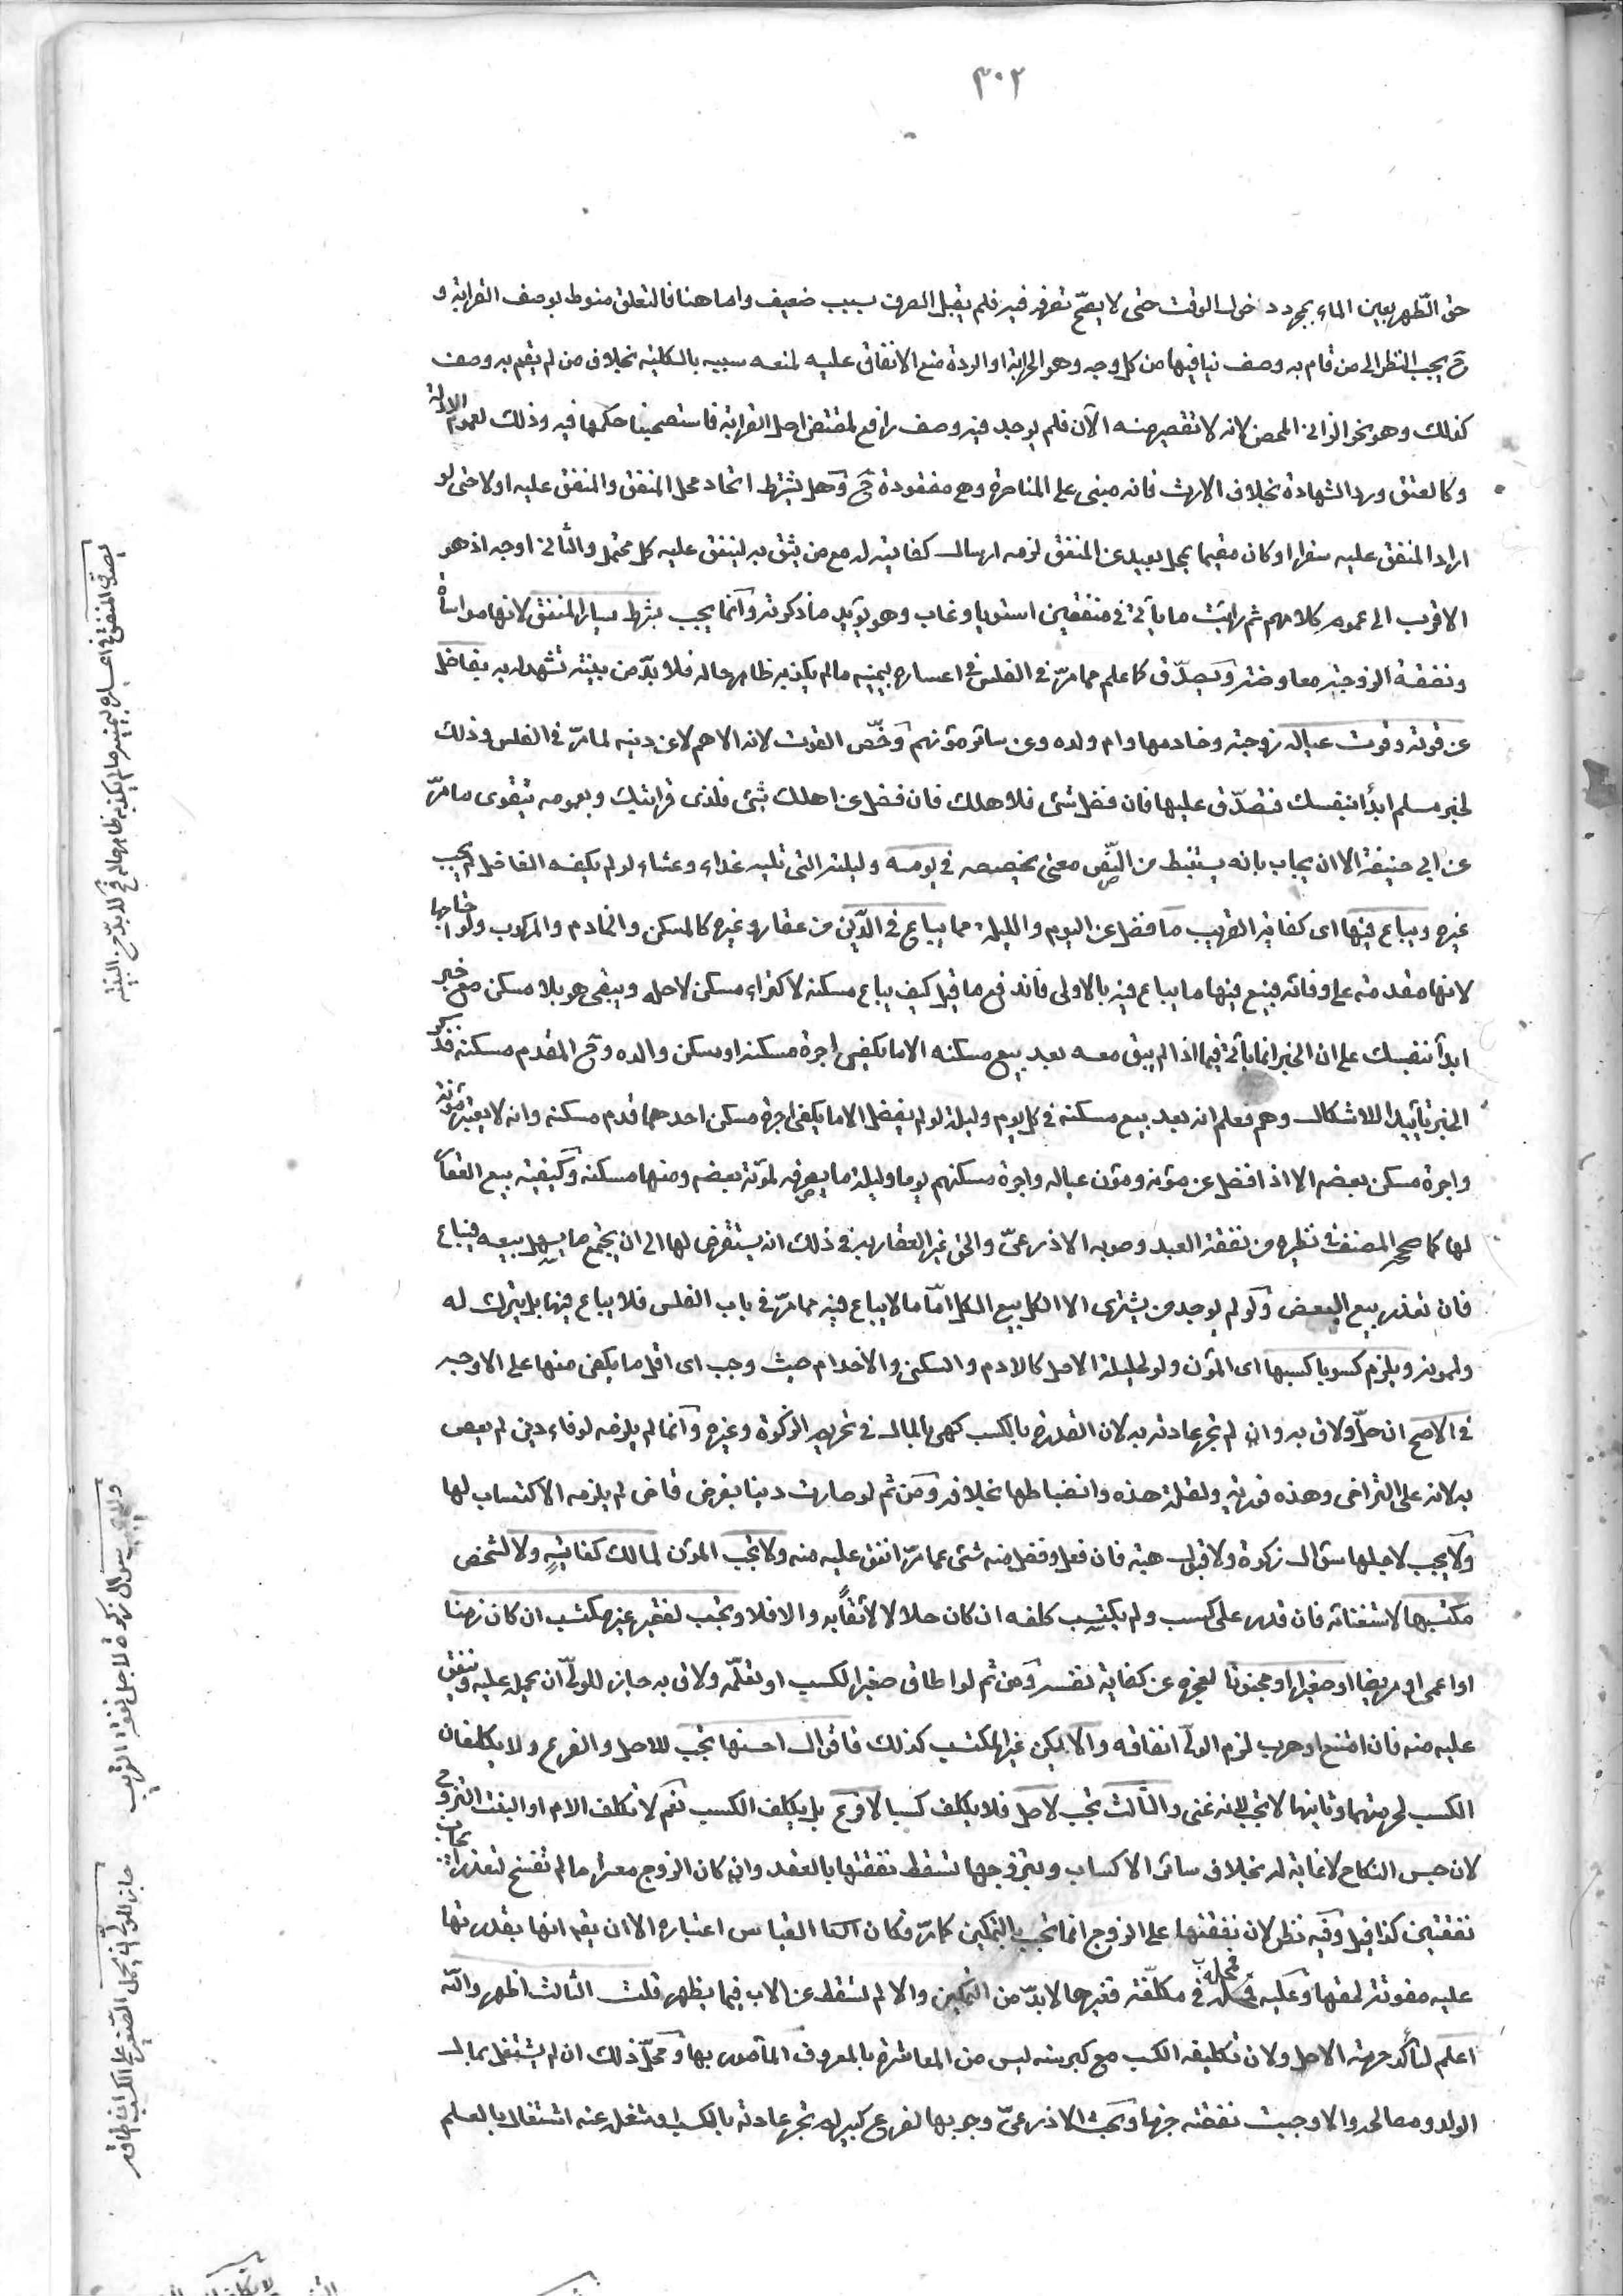 ٣٠٢
حق الطهر بعين الماء بمجرد دخول الوقت حتى لا يصح تصرفه فيه فلم يقبل الصرف بسبب ضعيف واما هنا فالتعلق منوط بوصف القرابة و
ح يجب النظر الى من قام به وصف ينافيها من كل وجه وهو الحرابة او الردة منع الانفاق عليه لمنعه سببه بالكلية بخلاف من لم يقم به وصف
كذلك وهو نحو الزانى المحصن لانه لا تقصير منه الآن فلم يوجد فيه وصف رافع لمقتضى اصل القرابة فاستصحبنا حكمها فيه وذلك لعموم الادلة
وكالعتق ورد الشهادة بخلاف الارث فانه مبنى على المناصرة وهى مفقودة ح وهل يشترط اتحاد محل المنفق والمنفق عليه اولا حتى لو
اراد المنفق عليه سفرا او كان مقيما بمحل بعيد عن المنفق لزمه ارسال كفايته له مع من يثق به لينفق عليه كل محتمل والثانى اوجه اذ هو
الاقرب الى عموم كلامهم ثم رايت ما يأتى فى منفقين استويا وغاب وهو يؤيد ما ذكرته وانما يجب بشرط يسار المنفق لانها مواساة
ونفقة الزوجية معاوضة ويصدق كما علم مما مر فى الفلس فى اعساره بيمينه ما لم يكذبه ظاهر حاله فلا بد من بينة تشهد له به بفاضل
عن قوته وقوت عياله زوجته وخادمها وام ولده وعن سائر مؤنهم وخص القوت لانه الاهم لا عن دينه لما مر فى الفلس وذلك
لخبر مسلم ابدأ بنفسك فتصدق عليها فان فضل شئ فلاهلك فان فضل عن اهلك شئ فلذى قرابتك وبعمومه يتقوى ما مر
عن ابى حنيفة الا ان يجاب بانه يستنبط من النص معنى يخصصه فى يومه وليلته التى تليه غداء وعشاء لو لم يكفه الفاضل لم يجب
غيره ويباع فيها اى كفاية القريب ما فضل عن اليوم والليلة مما يباع فى الدين من عقار وغيره كالمسكن والخادم والمركوب ولو احتاجها
لانها مقدمة على وفائه فبيع فيها ما يباع فيه بالاولى فاندفع ما قيل كيف يباع مسكنه لاكتراء مسكن لاصله ويبقى هو بلا مسكن مع خبر
ابدأ بنفسك على ان الخبر انما يأتى فيما اذا لم يبق معه بعد بيع مسكنه الا ما يكفى اجرة مسكنه او مسكن والده وح المقدم مسكنه فذكر
الخبر تأييدا للاشكال وهم فعلم انه بعد بيع مسكنه فى كل يوم وليلة لو لم يفضل الا ما يكفى اجرة مسكن احدهما قدم مسكنه وانه لا يعتبر مؤنة
واجرة مسكن بعضه الا اذا فضل عن مؤنه ومؤن عياله واجرة مسكنهم يوما وليلة ما يصرفه لمؤنة بعضه ومنها مسكنه وكيفية بيع العقار
لها كما صححه المصنف فى نظيره من نفقة العبد وصوبه الاذرعى والحق غير العقار به فى ذلك انه يستقرض لها الى ان يجتمع ما يسهل بيعه فيباع
فان تعذر بيع البعض ولو لم يوجد من يشترى الا الكل بيع الكل اما ما لا يباع فيه مما مر فى باب الفلس فلا يباع فيها بل يترك له
ولممونه ويلزم كسوبا كسبها اى المؤن ولو لحليلة الاصل كالادم والسكنى والاخدام حيث وجب اى اقل ما يكفى منها على الاوجه
فى الاصح ان حل ولاق به وان لم تجر عادته به لان القدرة بالكسب كهى بالمال فى تحريم الزكوة وغيره وانما لم يلزمه لوفاء دين لم يعص
به لانه على التراخى وهذه فورية ولقلة هذه وانضباطها بخلافه ومن ثم لو صارت دينا بفرض قاض لم يلزمه الاكتساب لها
ولا يجب لاجلها سؤال زكوة ولا قبول هبة فان فعل وفضل منه شئ عما مر انفق عليه منه ولا تجب المؤن لمالك كفايته ولا لشخص
مكتسبها لاستغنائه فان قدر على كسب ولم يكتسب كلفه ان كان حلالا لائقا به والا فلا وتجب لفقير غير مكتسب ان كان زمنا
او اعمى او مريضا او صغيرا او مجنونا لعجزه عن كفاية نفسه ومن ثم لو اطاق صغير الكسب او تعلمه ولاق به جاز للولى ان يحمله عليه وينفق
عليه منه فان امتنع او هرب لزم الولى انفاقه والا يكن غير المكتسب كذلك فاقوال احسنها تجب للاصل والفرع ولا يكلفان
الكسب لحرمتهما وثانيها لا تجب لانه غنى والثالث تجب لاصل فلا يكلف كسبا لا فرع بل يكلف الكسب نعم لا تكلف الام او البنت التزوج
لان حبس النكاح لا غاية له بخلاف سائر الاكساب وبتزوجها تسقط نفقتها بالعقد وان كان الزوج معسرا ما لم تفسخ لتعذر ايجاب
نفقتين كذا قيل وفيه نظر لان نفقتها على الزوج انما تجب بالتمكين كما مر فكان القياس اعتباره الا ان يقال انها بقدرتها
عليه مفوتة لحقها وعليه فمحله فى مكلفة فغيرها لا بد من التمكين والا لم تسقط عن الاب فيما يظهر قلت الثالث اظهر والله
اعلم لتأكد حرمة الاصل ولان تكليفه الكسب مع كبر سنه ليس من المعاشرة بالمعروف المأمور بها ومحل ذلك ان لم يشتغل بمال
الولد ومصالحه والا وجبت نفقته جزما وبحث الاذرعى وجوبها لفرع كبير لم تجر عادته بالكسب او شغله عنه اشتغال بالعلم
يصدق المنفق فى اعساره بيمينه ما لم يكذبه ظاهر حاله فح لا بد من البينة
ولا يجب سؤال زكوة لاجل نفقة القريب
جاز للولى ان يحمل الصغير على الكسب ان اطاقه